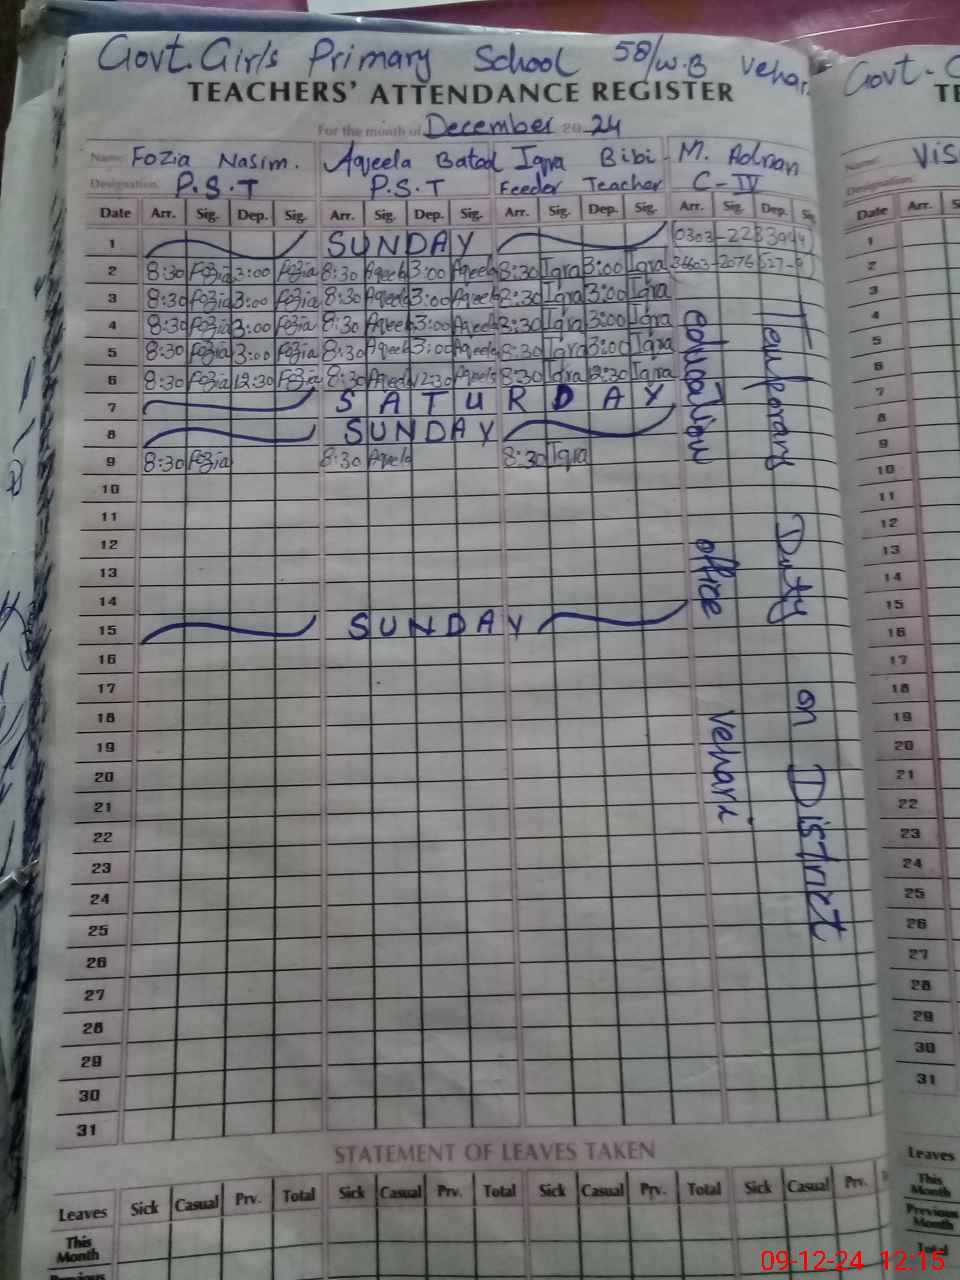 Govt. Girls Primary School 58/W.B Vehari
TEACHERS' ATTENDANCE REGISTER
For the month of December 2024
Name Fozia Nasim. Aqeela Batool Iqra Bibi M. Adnan
Designation P.S.T P.S.T Feeder Teacher C-IV
Date Arr. Sig. Dep. Sig. Arr. Sig. Dep. Sig. Arr. Sig. Dep. Sig. Arr. Sig. Dep. Sig.
1 SUNDAY
2 8:30 Fozia 3:00 Fozia 8:30 Aqeela 3:00 Aqeela 8:30 Iqra 3:00 Iqra
3 8:30 Fozia 3:00 Fozia 8:30 Aqeela 3:00 Aqeela 8:30 Iqra 3:00 Iqra
4 8:30 Fozia 3:00 Fozia 8:30 Aqeela 3:00 Aqeela 8:30 Iqra 3:00 Iqra
5 8:30 Fozia 3:00 Fozia 8:30 Aqeela 3:00 Aqeela 8:30 Iqra 3:00 Iqra
6 8:30 Fozia 12:30 Fozia 8:30 Aqeela 12:30 Aqeela 8:30 Iqra 12:30 Iqra
7 SATURDAY
8 SUNDAY
9 8:30 Fozia 8:30 Aqeela 8:30 Iqra
10
11
12
13
14
15 SUNDAY
16
17
18
19
20
21
22
23
24
25
26
27
28
29
30
31
Temporary Duty on District
education office vehari
STATEMENT OF LEAVES TAKEN
Leaves Sick Casual Prv. Total Sick Casual Prv. Total Sick Casual Prv. Total Sick Casual Prv.
This Month
Previous
Govt-
Name:
Designation:
Date Arr.
1
2
3
4
5
6
7
8
9
10
11
12
13
14
15
16
17
18
19
20
21
22
23
24
25
26
27
28
29
30
31
Leaves
This Month
Previous Month
Total
09-12-24 12:15